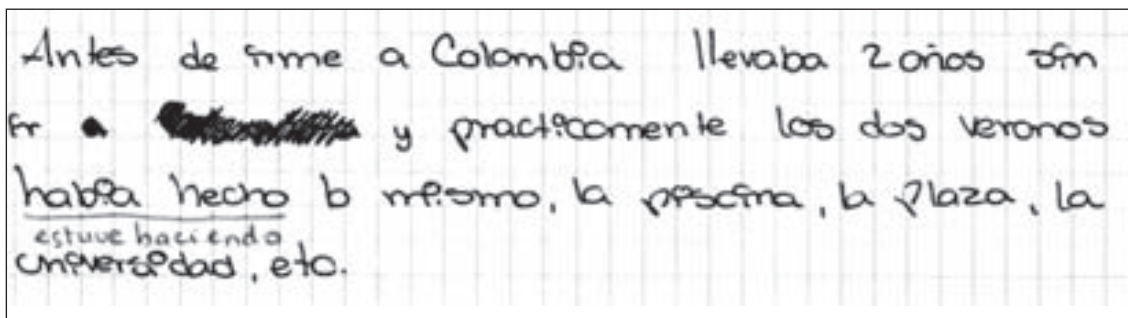 Antes de irme a Colombia llevaba 2 años sin
ir a y practicamente los dos veranos
había hecho lo mismo, la piscina, la plaza, la
estuve haciendo
universidad, etc.